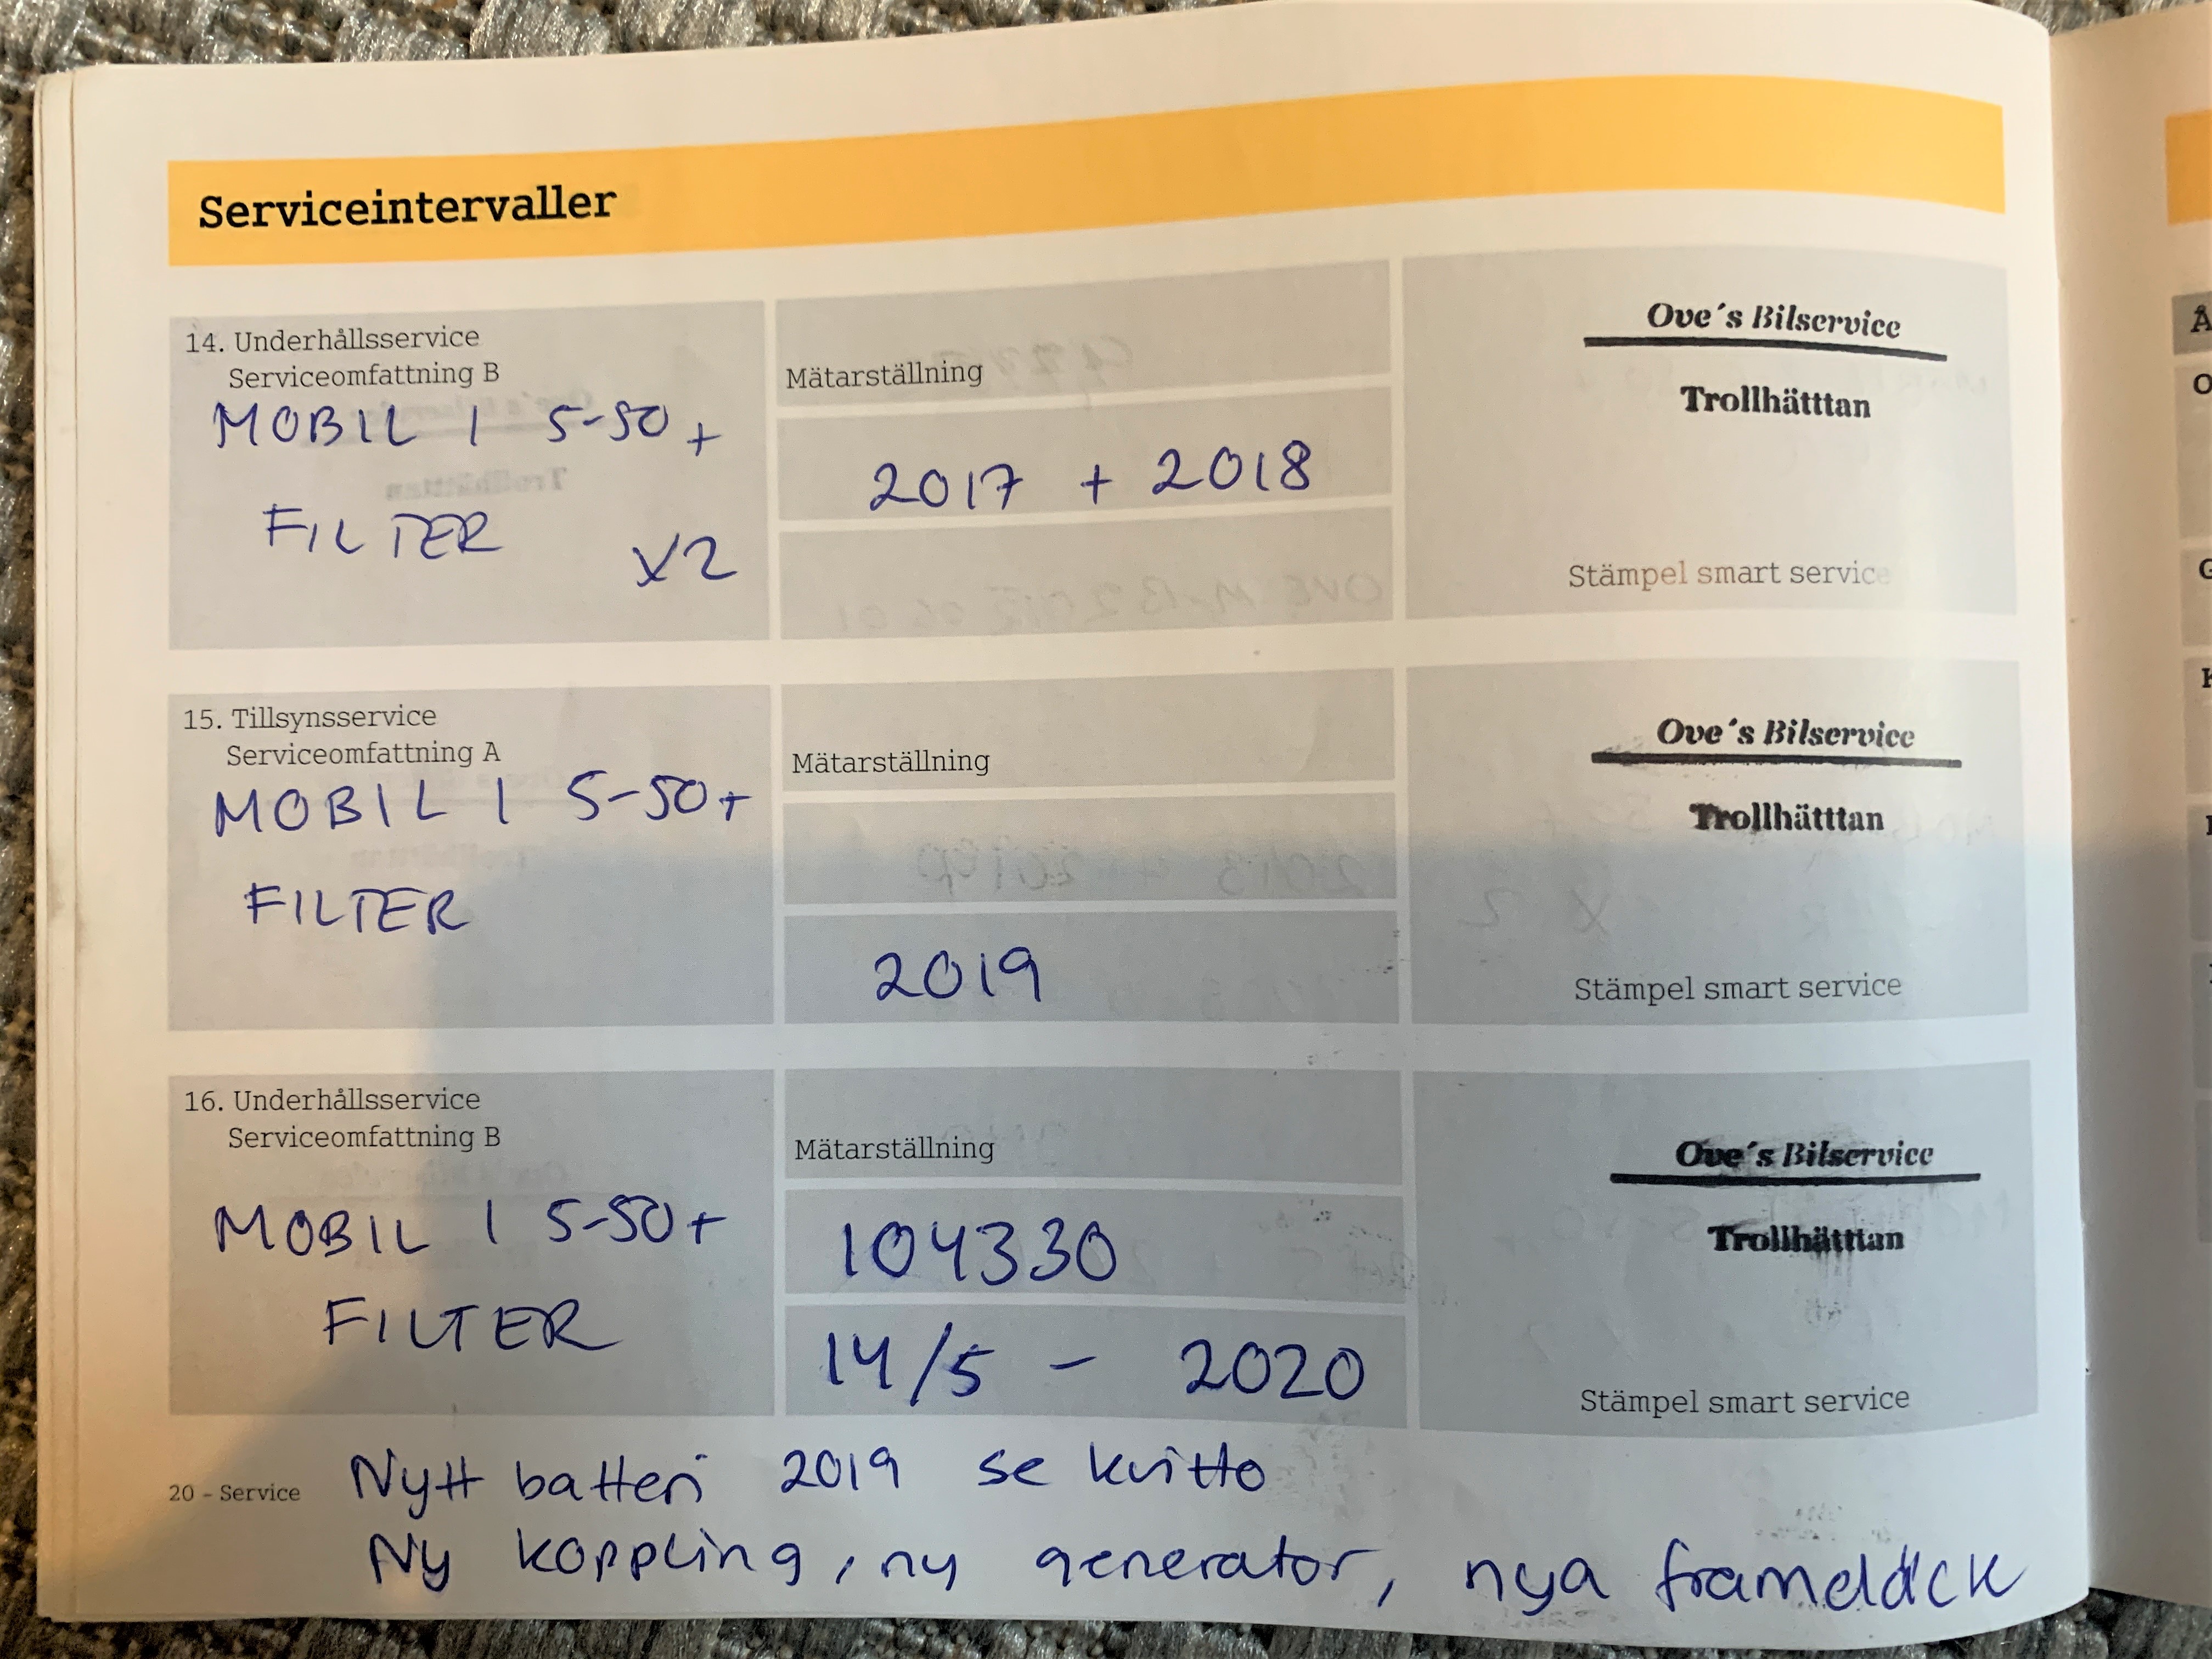 Serviceintervaller
14. Underhållsservice
Serviceomfattning B
MOBIL 1 5-50 +
FILTER X2
Mätarställning
2017 + 2018
Ove´s Bilservice
Trollhätttan
Stämpel smart service
15. Tillsynsservice
Serviceomfattning A
MOBIL 1 5-50+
FILTER
Mätarställning
2019
Ove´s Bilservice
Trollhätttan
Stämpel smart service
16. Underhållsservice
Serviceomfattning B
MOBIL 1 5-50+
FILTER
Mätarställning
104330
14/5 - 2020
Ove´s Bilservice
Trollhätttan
Stämpel smart service
20 - Service
Nytt batteri 2019 se kvitto
Ny koppling, ny generator, nya framdäck